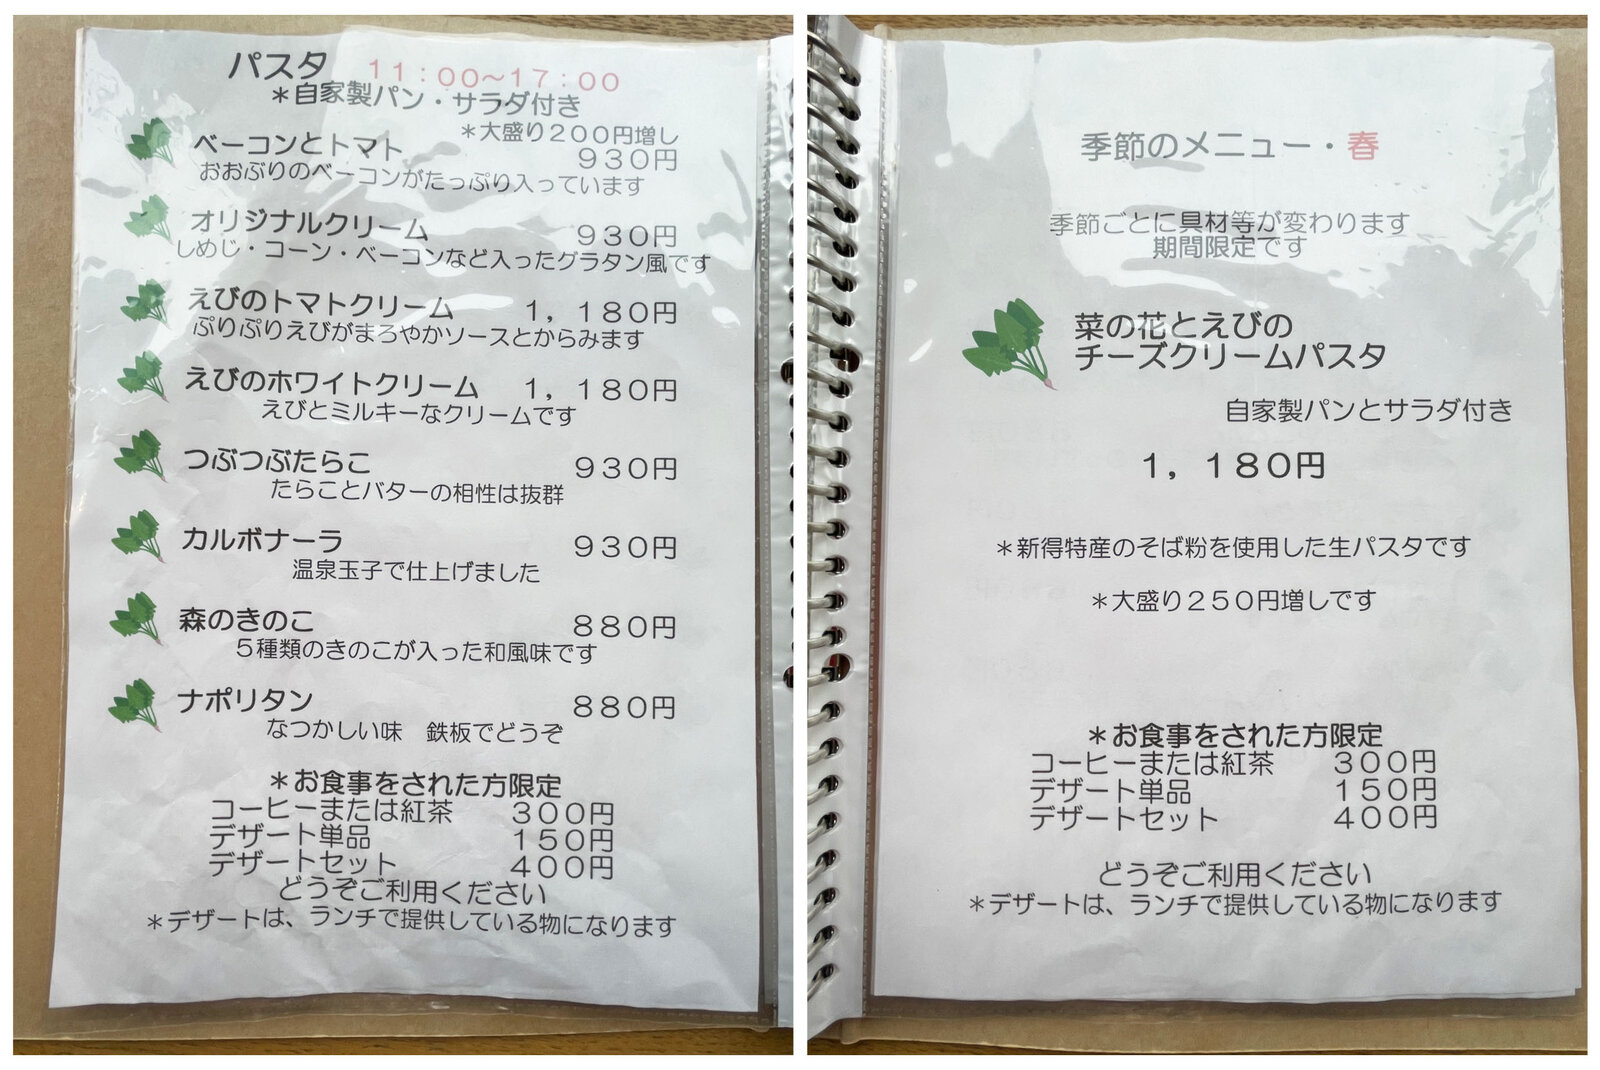 パスタ 11:00～17:00
＊自家製パン・サラダ付き
＊大盛り200円増し
ベーコンとトマト 930円
おおぶりのベーコンがたっぷり入っています
オリジナルクリーム 930円
しめじ・コーン・ベーコンなど入ったグラタン風です
えびのトマトクリーム 1，180円
ぷりぷりえびがまろやかソースとからみます
えびのホワイトクリーム 1，180円
えびとミルキーなクリームです
つぶつぶたらこ 930円
たらことバターの相性は抜群
カルボナーラ 930円
温泉玉子で仕上げました
森のきのこ 880円
5種類のきのこが入った和風味です
ナポリタン 880円
なつかしい味　鉄板でどうぞ
＊お食事をされた方限定
コーヒーまたは紅茶 300円
デザート単品 150円
デザートセット 400円
どうぞご利用ください
＊デザートは、ランチで提供している物になります
季節のメニュー・春
季節ごとに具材等が変わります
期間限定です
菜の花とえびの
チーズクリームパスタ
自家製パンとサラダ付き
1，180円
＊新得特産のそば粉を使用した生パスタです
＊大盛り250円増しです
＊お食事をされた方限定
コーヒーまたは紅茶 300円
デザート単品 150円
デザートセット 400円
どうぞご利用ください
＊デザートは、ランチで提供している物になります